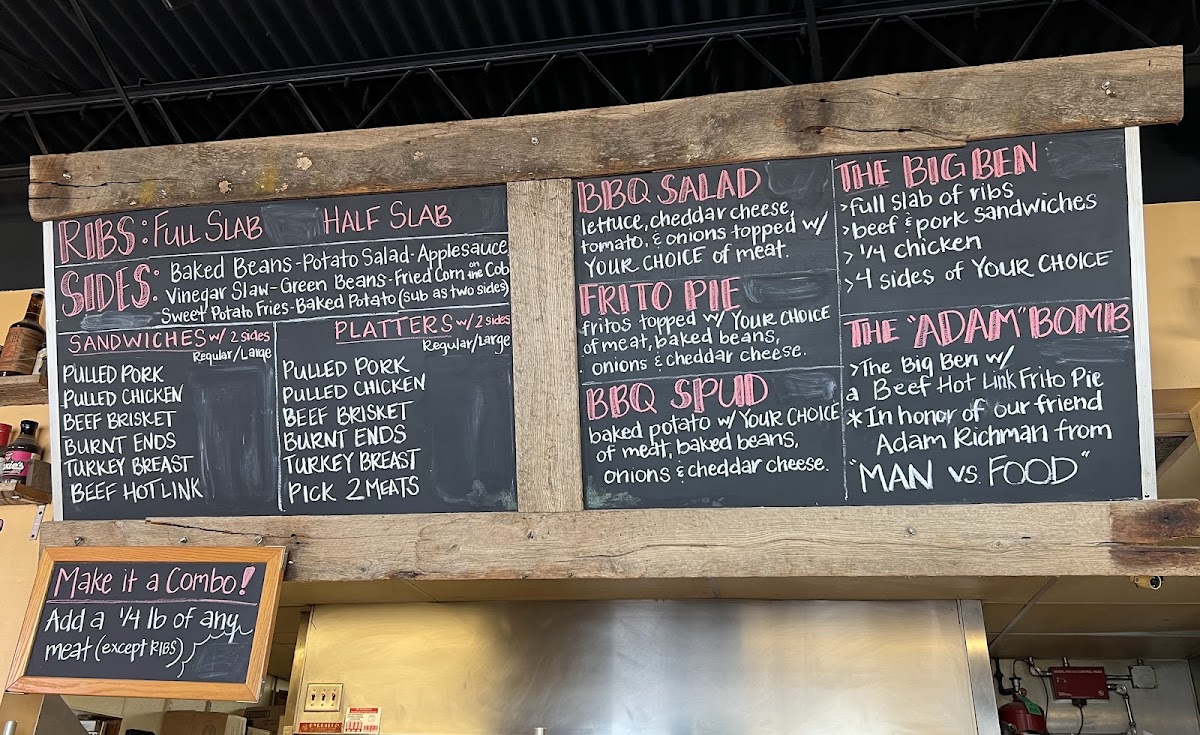 RIBS: FULL SLAB HALF SLAB
SIDES: Baked Beans-Potato Salad-Applesauce
Vinegar Slaw-Green Beans-Fried Corn on the Cob
Sweet Potato Fries-Baked Potato (sub as two sides)
SANDWICHES w/ 2 sides
Regular/Large
PULLED PORK
PULLED CHICKEN
BEEF BRISKET
BURNT ENDS
TURKEY BREAST
BEEF HOT LINK
PLATTERS w/ 2 sides
Regular/Large
PULLED PORK
PULLED CHICKEN
BEEF BRISKET
BURNT ENDS
TURKEY BREAST
PICK 2 MEATS
BBQ SALAD
lettuce, cheddar cheese,
tomato, & onions topped w/
YOUR CHOICE of meat.
FRITO PIE
fritos topped w/ YOUR CHOICE
of meat, baked beans,
onions & cheddar cheese.
BBQ SPUD
baked potato w/ YOUR CHOICE
of meat, baked beans,
onions & cheddar cheese.
THE BIG BEN
>full slab of ribs
>beef & pork sandwiches
> 1/4 chicken
>4 sides of YOUR CHOICE
THE "ADAM" BOMB
>The Big Ben w/
a Beef Hot Link Frito Pie
*In honor of our friend
Adam Richman from
"MAN vs. FOOD"
Make it a Combo!
Add a 1/4 lb of any
meat (except RIBS)